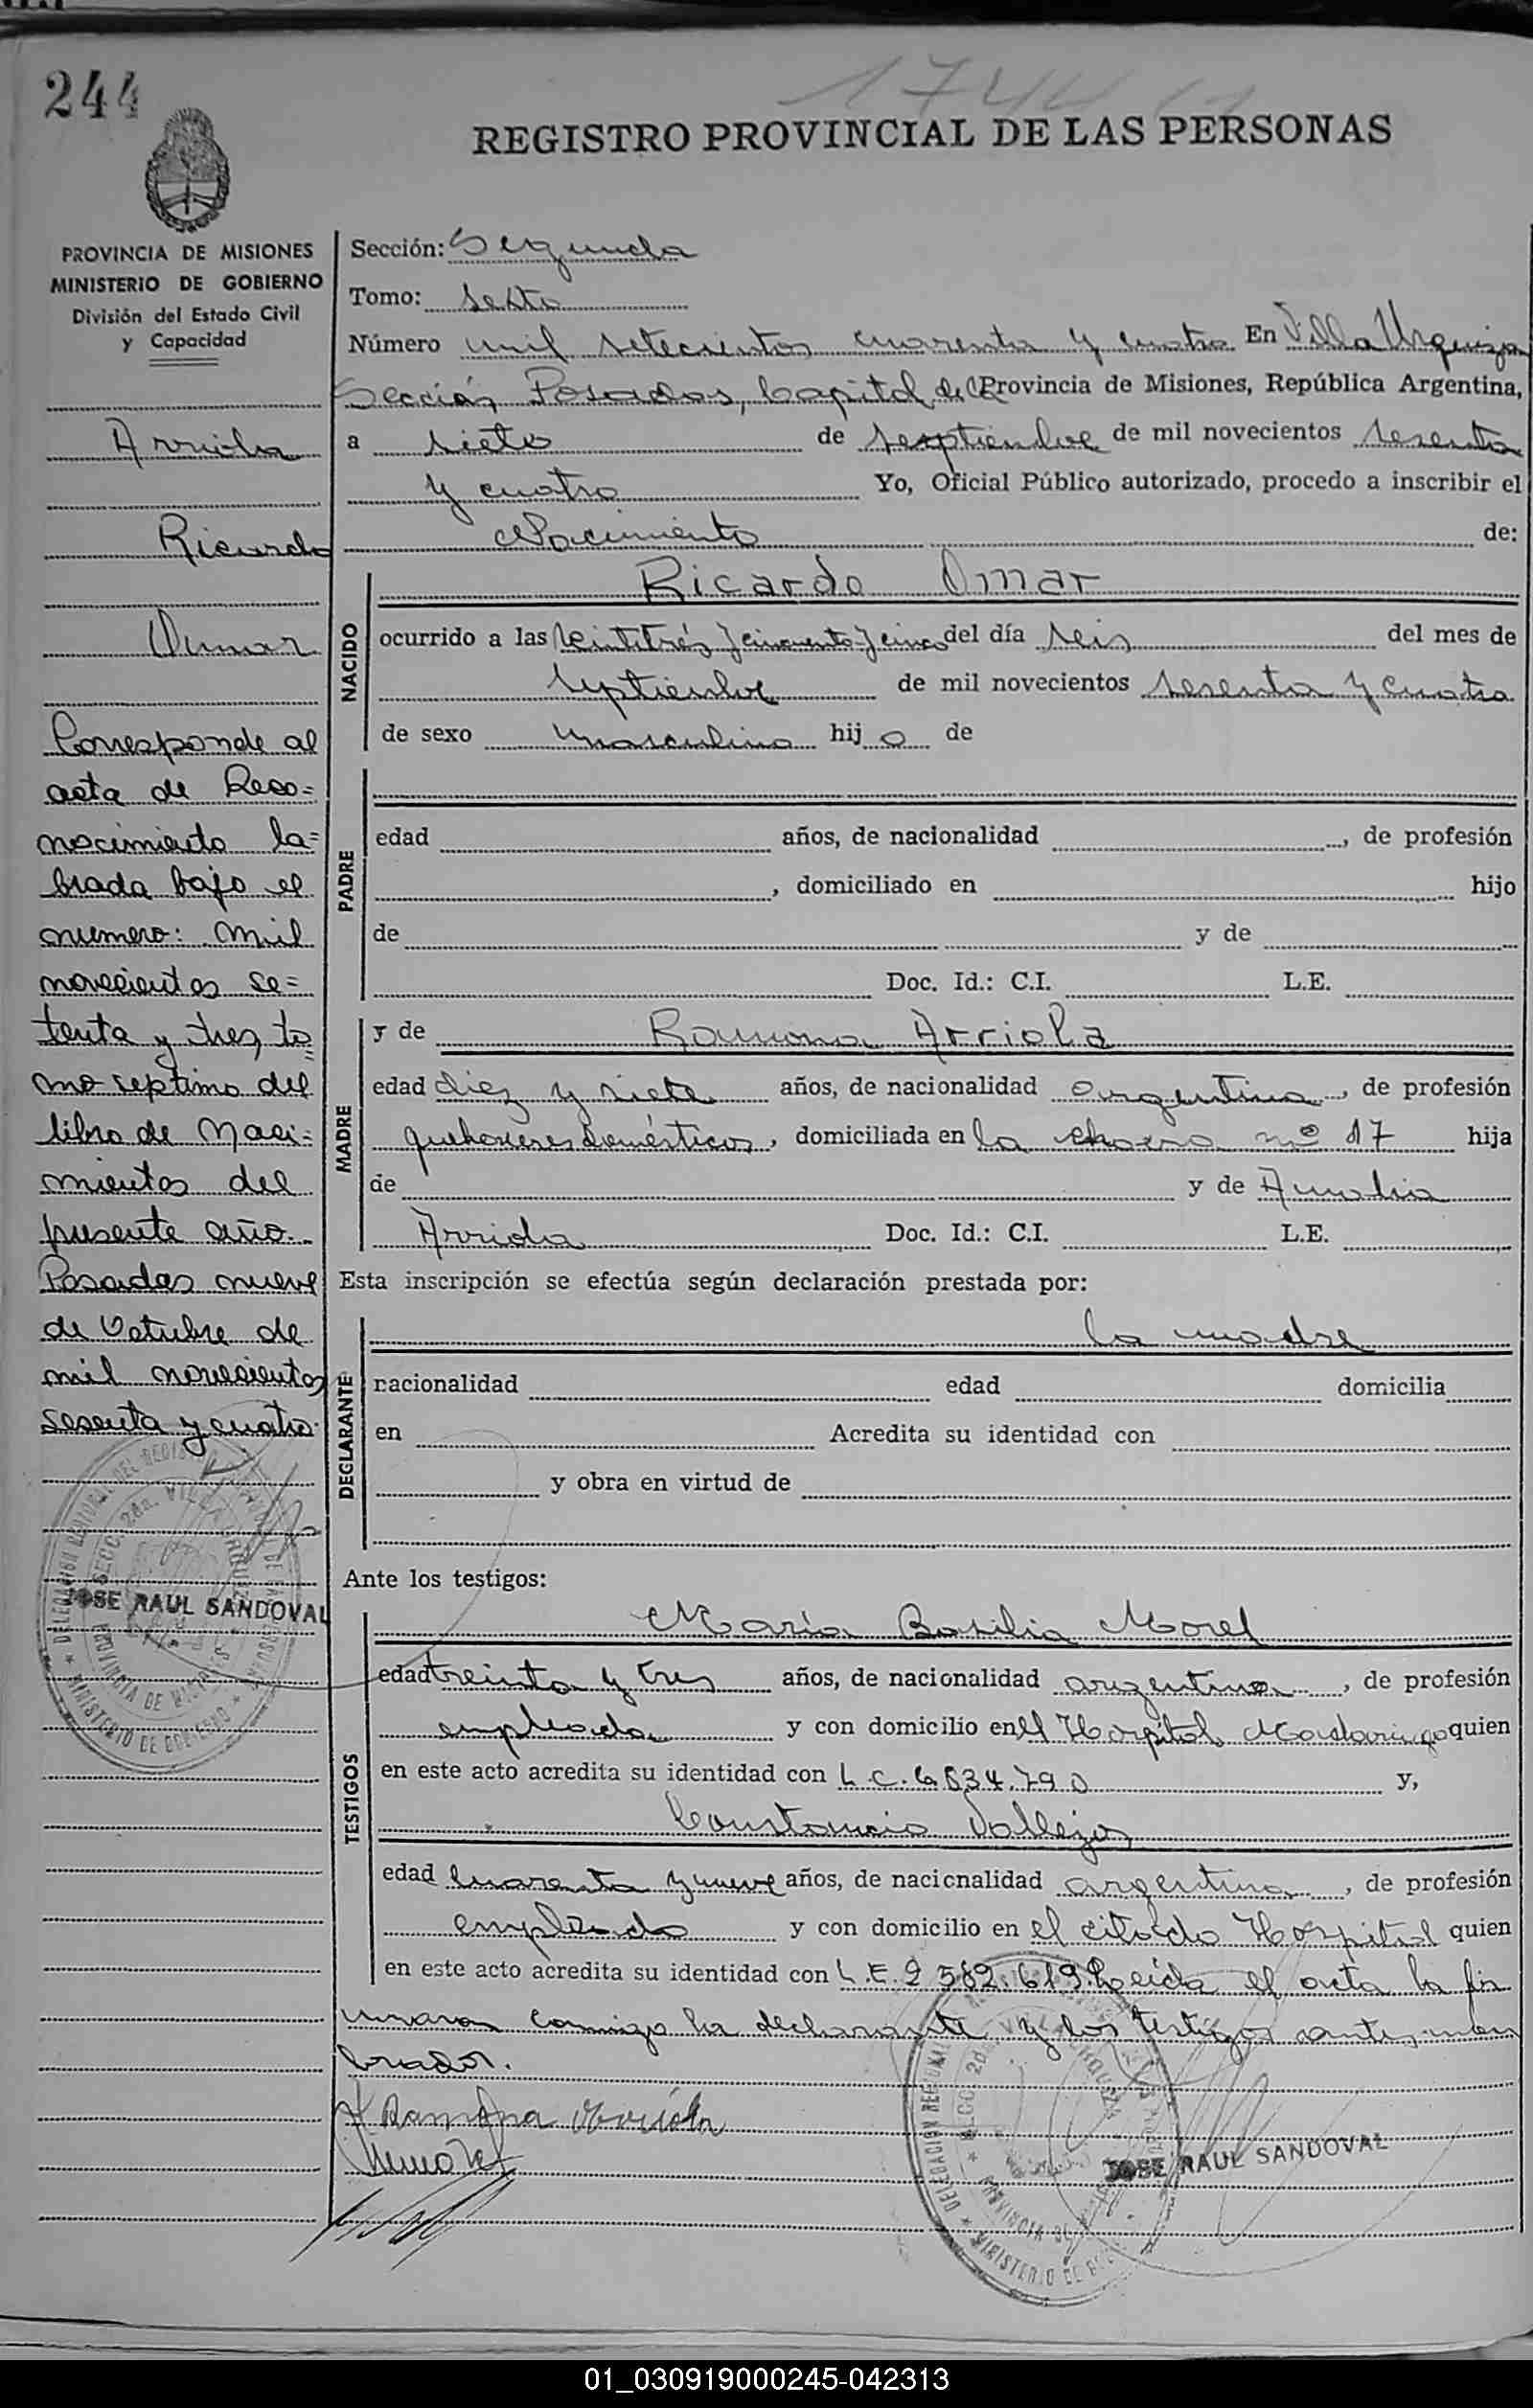 244
1744
REGISTRO PROVINCIAL DE LAS PERSONAS
PROVINCIA DE MISIONES
MINISTERIO DE GOBIERNO
División del Estado Civil
y Capacidad
Arriola
Ricardo
Omar
Corresponde al
acta de Reco=
nocimiento la=
brada bajo el
numero: mil
novecientos se=
tenta y tres, to=
mo septimo del
libro de Naci=
mientos del
presente año.
Posadas nueve
de Octubre de
mil novecientos
sesenta y cuatro.
JOSE RAUL SANDOVAL
Sección: Segunda
Tomo: sexto
Número mil setecientos cuarenta y cuatro En Villa Urquiza
Sección Posadas, Capital de la Provincia de Misiones, República Argentina,
a siete de septiembre de mil novecientos sesenta
y cuatro Yo, Oficial Público autorizado, procedo a inscribir el
Nacimiento de:
NACIDO
Ricardo Omar
ocurrido a las veintitrés y cincuenta y cinco del día seis del mes de
septiembre de mil novecientos sesenta y cuatro
de sexo masculino hijo de
PADRE
edad años, de nacionalidad , de profesión
, domiciliado en hijo
de y de
Doc. Id.: C.I. L.E.
MADRE
y de Ramona Arriola
edad diez y siete años, de nacionalidad argentina, de profesión
quehaceres domésticos, domiciliada en la chacra nº 17 hija
de y de Amalia
Arriola Doc. Id.: C.I. L.E.
Esta inscripción se efectúa según declaración prestada por:
DECLARANTE
la madre
nacionalidad edad domicilia
en Acredita su identidad con
y obra en virtud de
Ante los testigos:
TESTIGOS
María Basilia Morel
edad treinta y tres años, de nacionalidad argentina, de profesión
empleada y con domicilio en el Hospital Madariaga quien
en este acto acredita su identidad con L.C. 6.834.790 y,
Constancio Vallejos
edad cuarenta y nueve años, de nacionalidad argentina, de profesión
empleado y con domicilio en el citado Hospital quien
en este acto acredita su identidad con L.E. 2.582.619. Leída el acta la fir
maron conmigo la declarante y los testigos antes men
brados.
Ramona Arriola
JOSE RAUL SANDOVAL
01_030919000245-042313